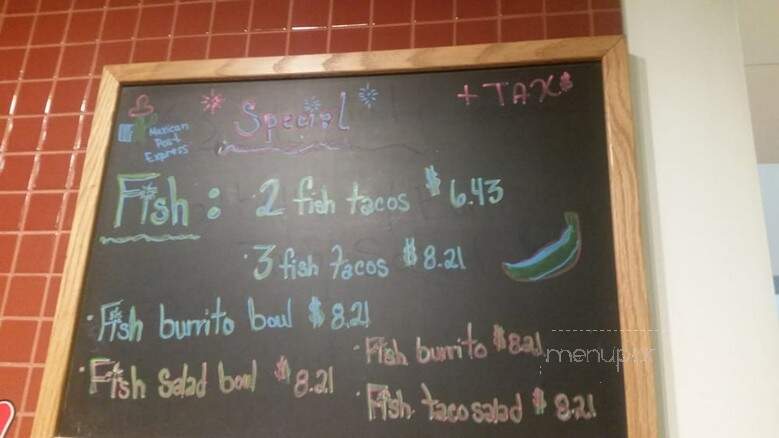 + TAX$
Special
Mexican
Post
Express
Fish: 2 fish tacos $6.43
· 3 fish tacos $8.21
· Fish burrito boul $8.21
· Fish burrito $8.21
· Fish Salad bowl $8.21
· Fish taco salad $8.21
menupix